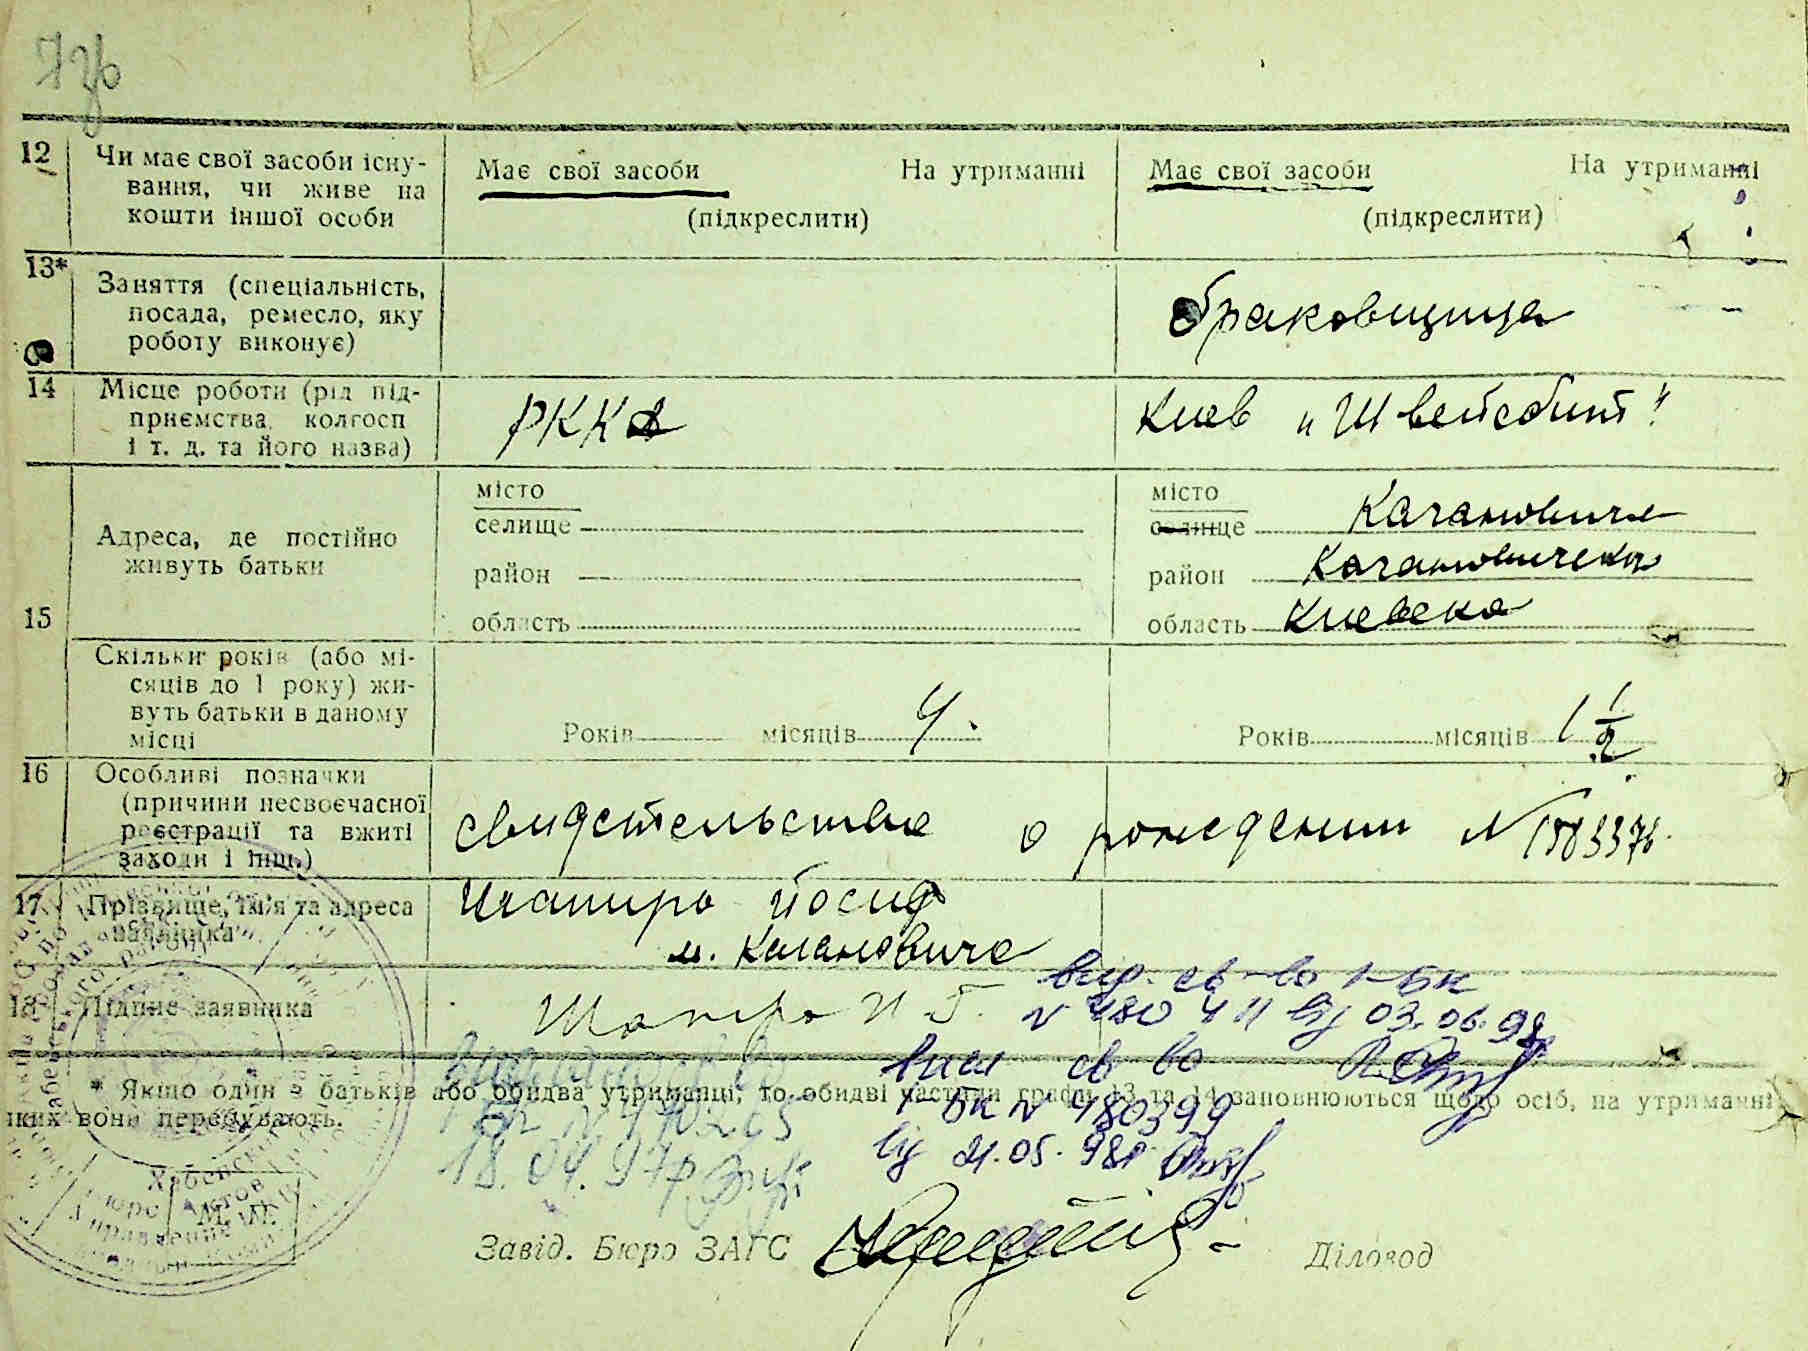 12 Чи має свої засоби існу-
вання, чи живе на
кошти іншої особи
Має свої засоби На утриманні
(підкреслити)
Має свої засоби На утриманні
(підкреслити)
13* Заняття (спеціальність,
посада, ремесло, яку
роботу виконує)
браковщица
14 Місце роботи (рід під-
приємства, колгосп
і т. д. та його назва)
РККА
Киев "Швейсбит"
15 Адреса, де постійно
живуть батьки
місто
селище
район
область
місто Кагановича
селище
район Кагановичский
область Киевска
Скільки років (або мі-
сяців до 1 року) жи-
вуть батьки в даному
місці
Років місяців 4.
Років місяців 1 1/2
16 Особливі позначки
(причини несвоєчасної
реєстрації та вжиті
заходи і інш.)
свидетельство о рождении N
17 Прізвище, ім'я та адреса
заявника
Шапиро Йосиф
м. Кагановича
18 Підпис заявника
Шапиро И Г.
вид. св-во І-БК
N 480411 від 03.06.98
вид св во
І-БК N 480399
від 21.05.98р
18.04.97р
* Якщо один з батьків або обидва утриманці, то обидві частини графи 13 та 14 заповнюються щодо осіб, на утриманні
яких вони перебувають.
М. П.
Завід. Бюро ЗАГС
Діловод